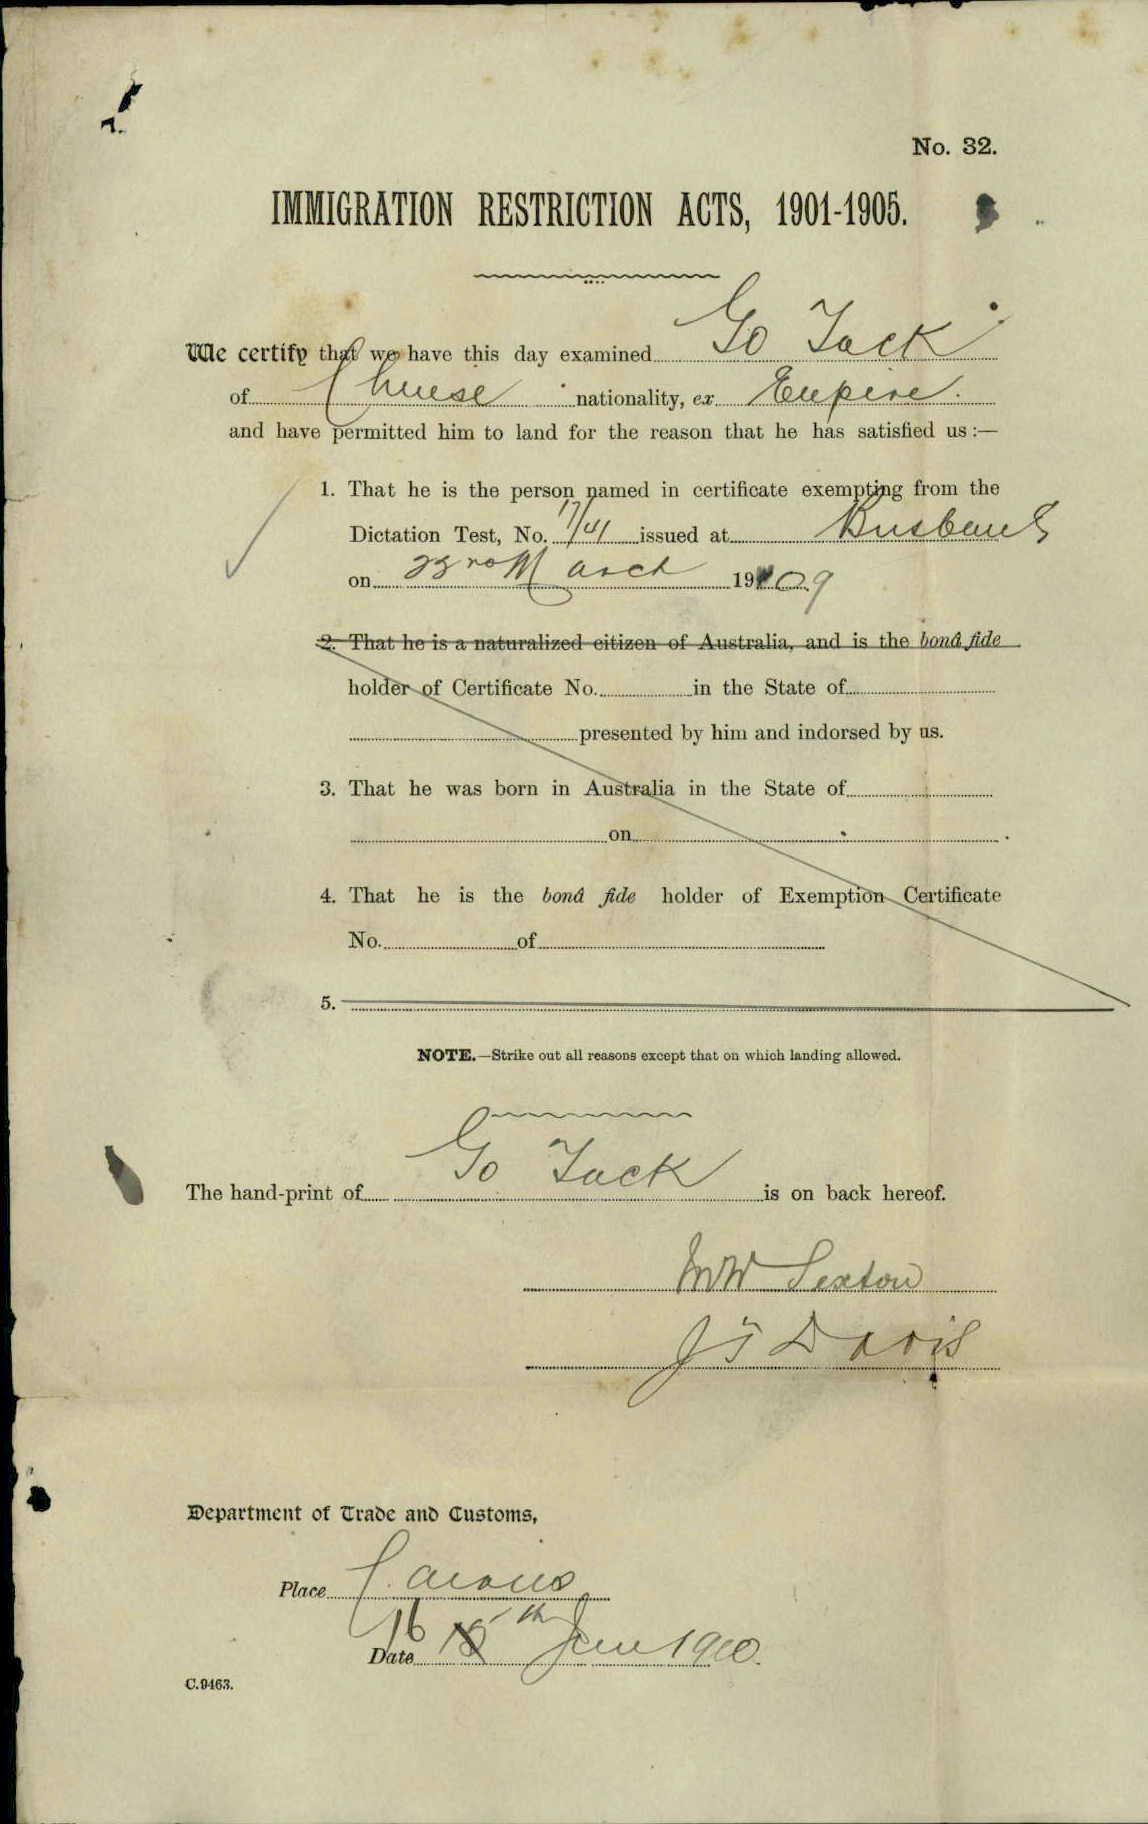 No. 32.
IMMIGRATION RESTRICTION ACTS, 1901-1905.
We certify that we have this day examined Go Tack
of Chinese nationality, ex Empire.
and have permitted him to land for the reason that he has satisfied us :—
1. That he is the person named in certificate exempting from the
Dictation Test, No. 17/41 issued at Brisbane
on 23rd March 1909
2. That he is a naturalized citizen of Australia, and is the bonâ fide
holder of Certificate No. in the State of
presented by him and indorsed by us.
3. That he was born in Australia in the State of
on
4. That he is the bonâ fide holder of Exemption Certificate
No. of
5.
NOTE.—Strike out all reasons except that on which landing allowed.
The hand-print of Go Tack is on back hereof.
Sexton
Davis
Department of Trade and Customs,
Place Cairns
Date 16 15th June 1910.
C.9463.